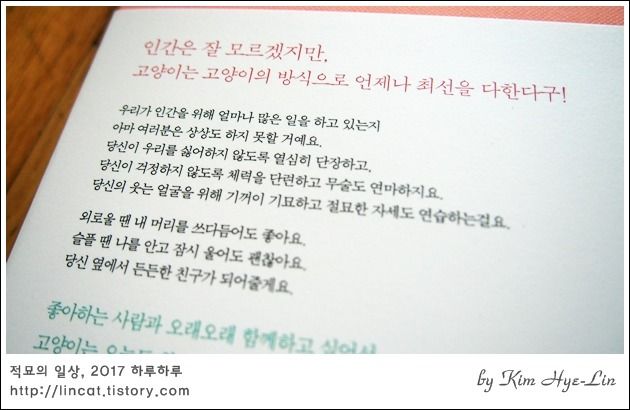 인간은 잘 모르겠지만,
고양이는 고양이의 방식으로 언제나 최선을 다한다구!
우리가 인간을 위해 얼마나 많은 일을 하고 있는지
아마 여러분은 상상도 하지 못할 거예요.
당신이 우리를 싫어하지 않도록 열심히 단장하고,
당신이 걱정하지 않도록 체력을 단련하고 무술도 연마하지요.
당신의 웃는 얼굴을 위해 기꺼이 기묘하고 절묘한 자세도 연습하는걸요.
외로울 땐 내 머리를 쓰다듬어도 좋아요.
슬플 땐 나를 안고 잠시 울어도 괜찮아요.
당신 옆에서 든든한 친구가 되어줄게요.
좋아하는 사람과 오래오래 함께하고 싶어서
고양이는 오늘도
적묘의 일상, 2017 하루하루
http://lincat.tistory.com
by Kim Hye-Lin